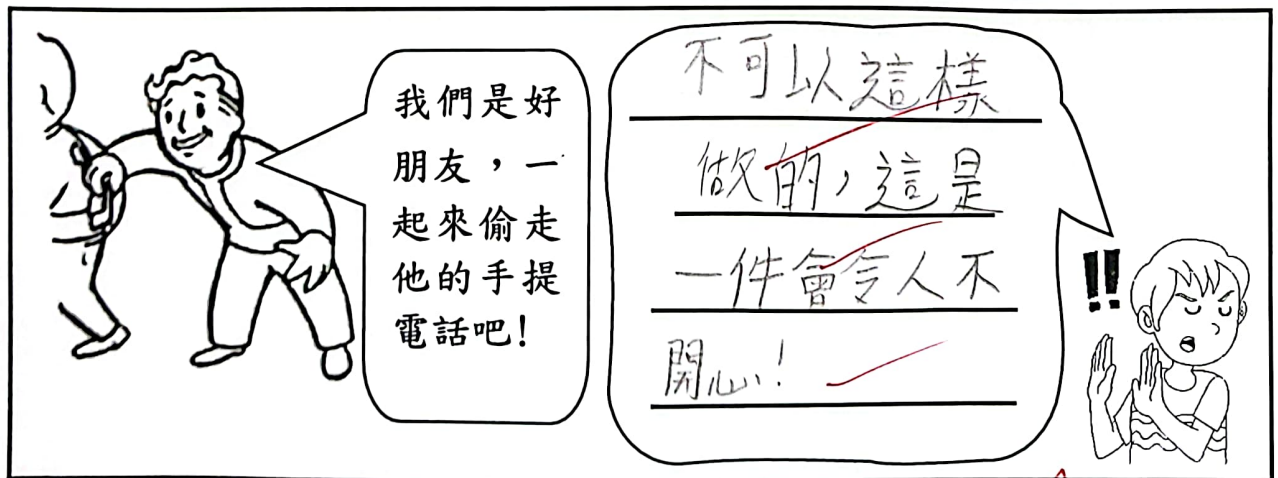 我們是好
朋友，一
起來偷走
他的手提
電話吧！
不可以這樣
做的，這是
一件會令人不
開心！
!!